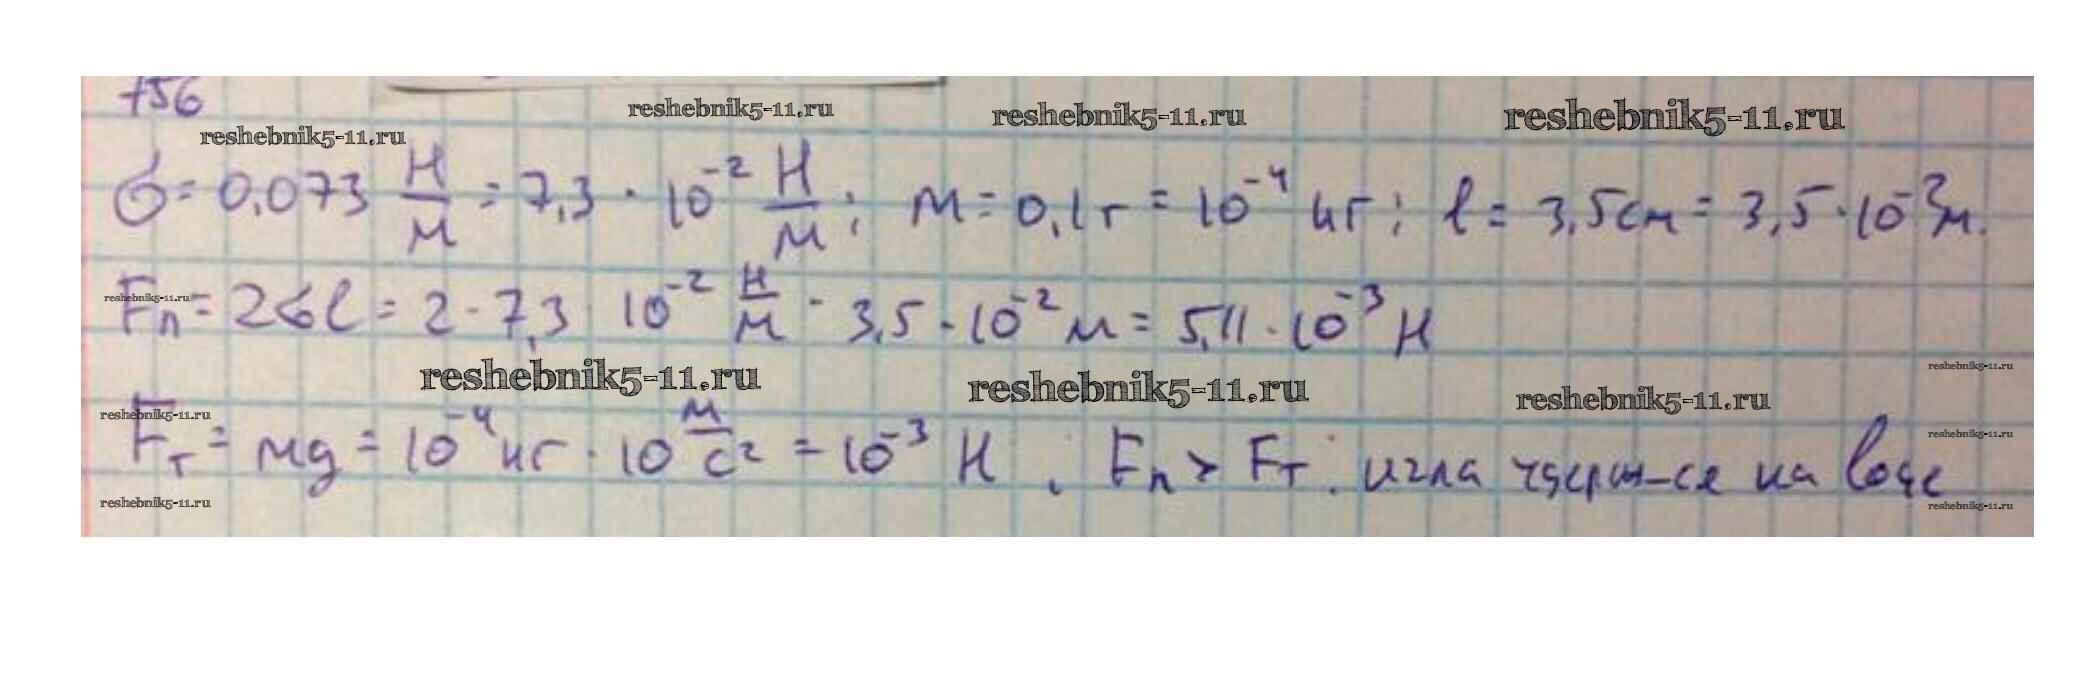 756
reshebnik5-11.ru reshebnik5-11.ru reshebnik5-11.ru
reshebnik5-11.ru
σ = 0,073 Н/м = 7,3 · 10⁻² Н/м; m = 0,1 г = 10⁻⁴ кг; l = 3,5 см = 3,5 · 10⁻² м.
reshebnik5-11.ru
Fп = 2σl = 2 · 7,3 10⁻² Н/м · 3,5 · 10⁻² м = 5,11 · 10⁻³ Н
reshebnik5-11.ru
reshebnik5-11.ru reshebnik5-11.ru reshebnik5-11.ru
reshebnik5-11.ru reshebnik5-11.ru
Fт = mg = 10⁻⁴ кг · 10 м/с² = 10⁻³ Н, Fп > Fт. игла удерж-ся на воде
reshebnik5-11.ru reshebnik5-11.ru